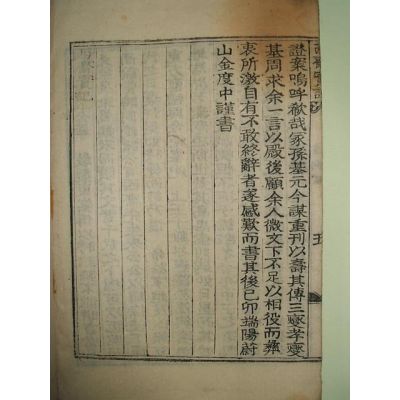 實記
五
證案嗚呼哉冢孫基元今謀重刊以壽其傳三燮孝燮
基周求余一言以殿後顧余人微文下不足以相役而彝
衷所激自有不敢終辭者遂感歎而書其後己卯端陽蔚
山金度中謹書